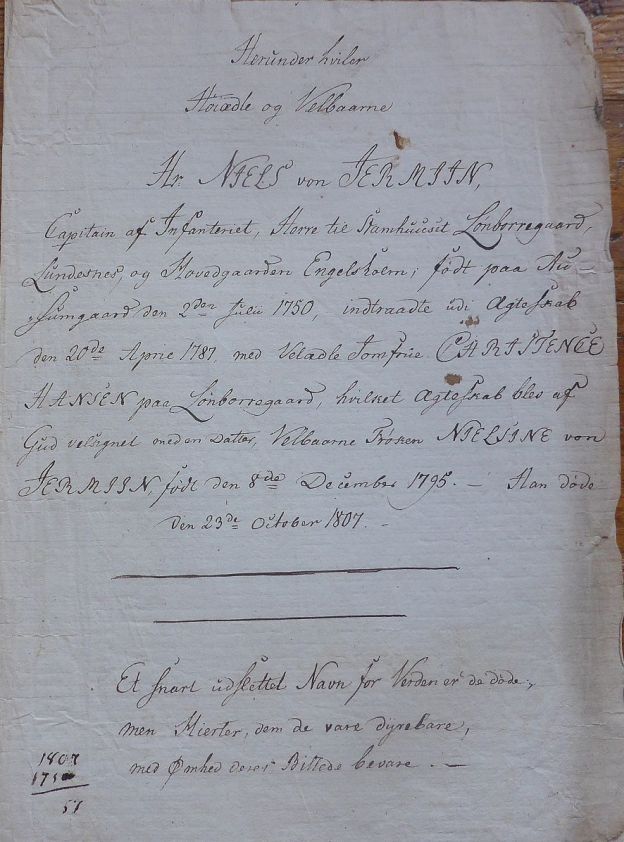 Herunder hviler
Höiædle og Velbaarne
Hr. NIELS von JERMIIN,
Capitain af Infanteriet, Herre til Stamhuuset Lönborregaard,
Lundesnes, og Hovedgaarden Engelsholm; født paa Au-
sumgaard den 2den Julii 1750, indtraadte udi Ægteskab
den 20de April 1787 med Velædle Jomfrue CHRISTENCE
HANSEN paa Lönborregaard, hvilket Ægteskab blev af
Gud velsignet med en Datter, Velbaarne Frøken NIELSINE von
JERMIIN, født den 8de December 1795. — Han døde
den 23de October 1807. —
Et snart udslettet Navn for Verden er de døde;
men Hierter, dem de vare dyrebare,
med Ømhed deres Billede bevare. —
1807
1750
57